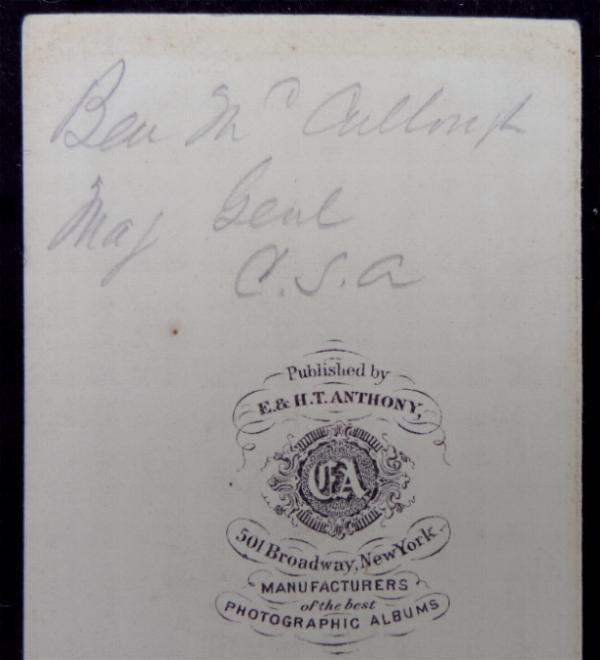 Ben McCullough
Maj Genl
C.S.A
Published by
E. & H.T. ANTHONY,
EA
501 Broadway, New York.
MANUFACTURERS
of the best
PHOTOGRAPHIC ALBUMS